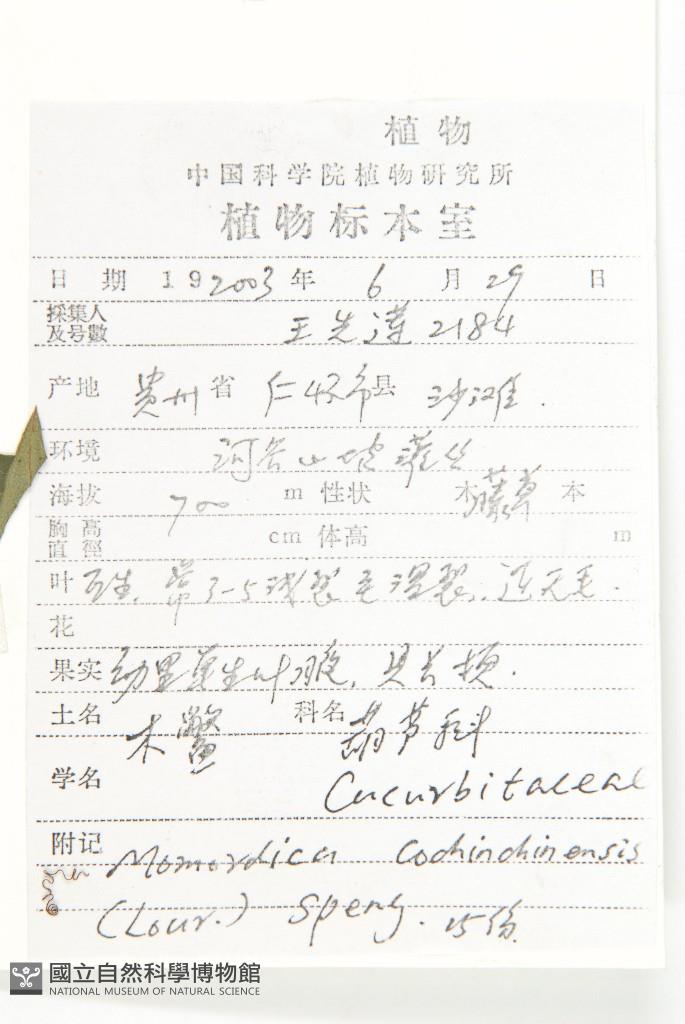 植物
中国科学院植物研究所
植物标本室
日期 19 2003 年 6 月 29 日
採集人
及号數 王先 2184
产地 贵州省 仁怀市县 沙滩.
环境 河谷山坡灌丛
海拔 700 m 性状 木藤草本
胸高
直徑 cm 体高 m
叶 互生, 常3-5浅裂至深裂, 近无毛.
花
果实 幼果单生叶腋, 具长梗.
土名 木鳖 科名 葫芦科
学名 Cucurbitaceae
附记 Momordica cochinchinensis
(Lour.) Speng. 15份.
國立自然科學博物館
NATIONAL MUSEUM OF NATURAL SCIENCE